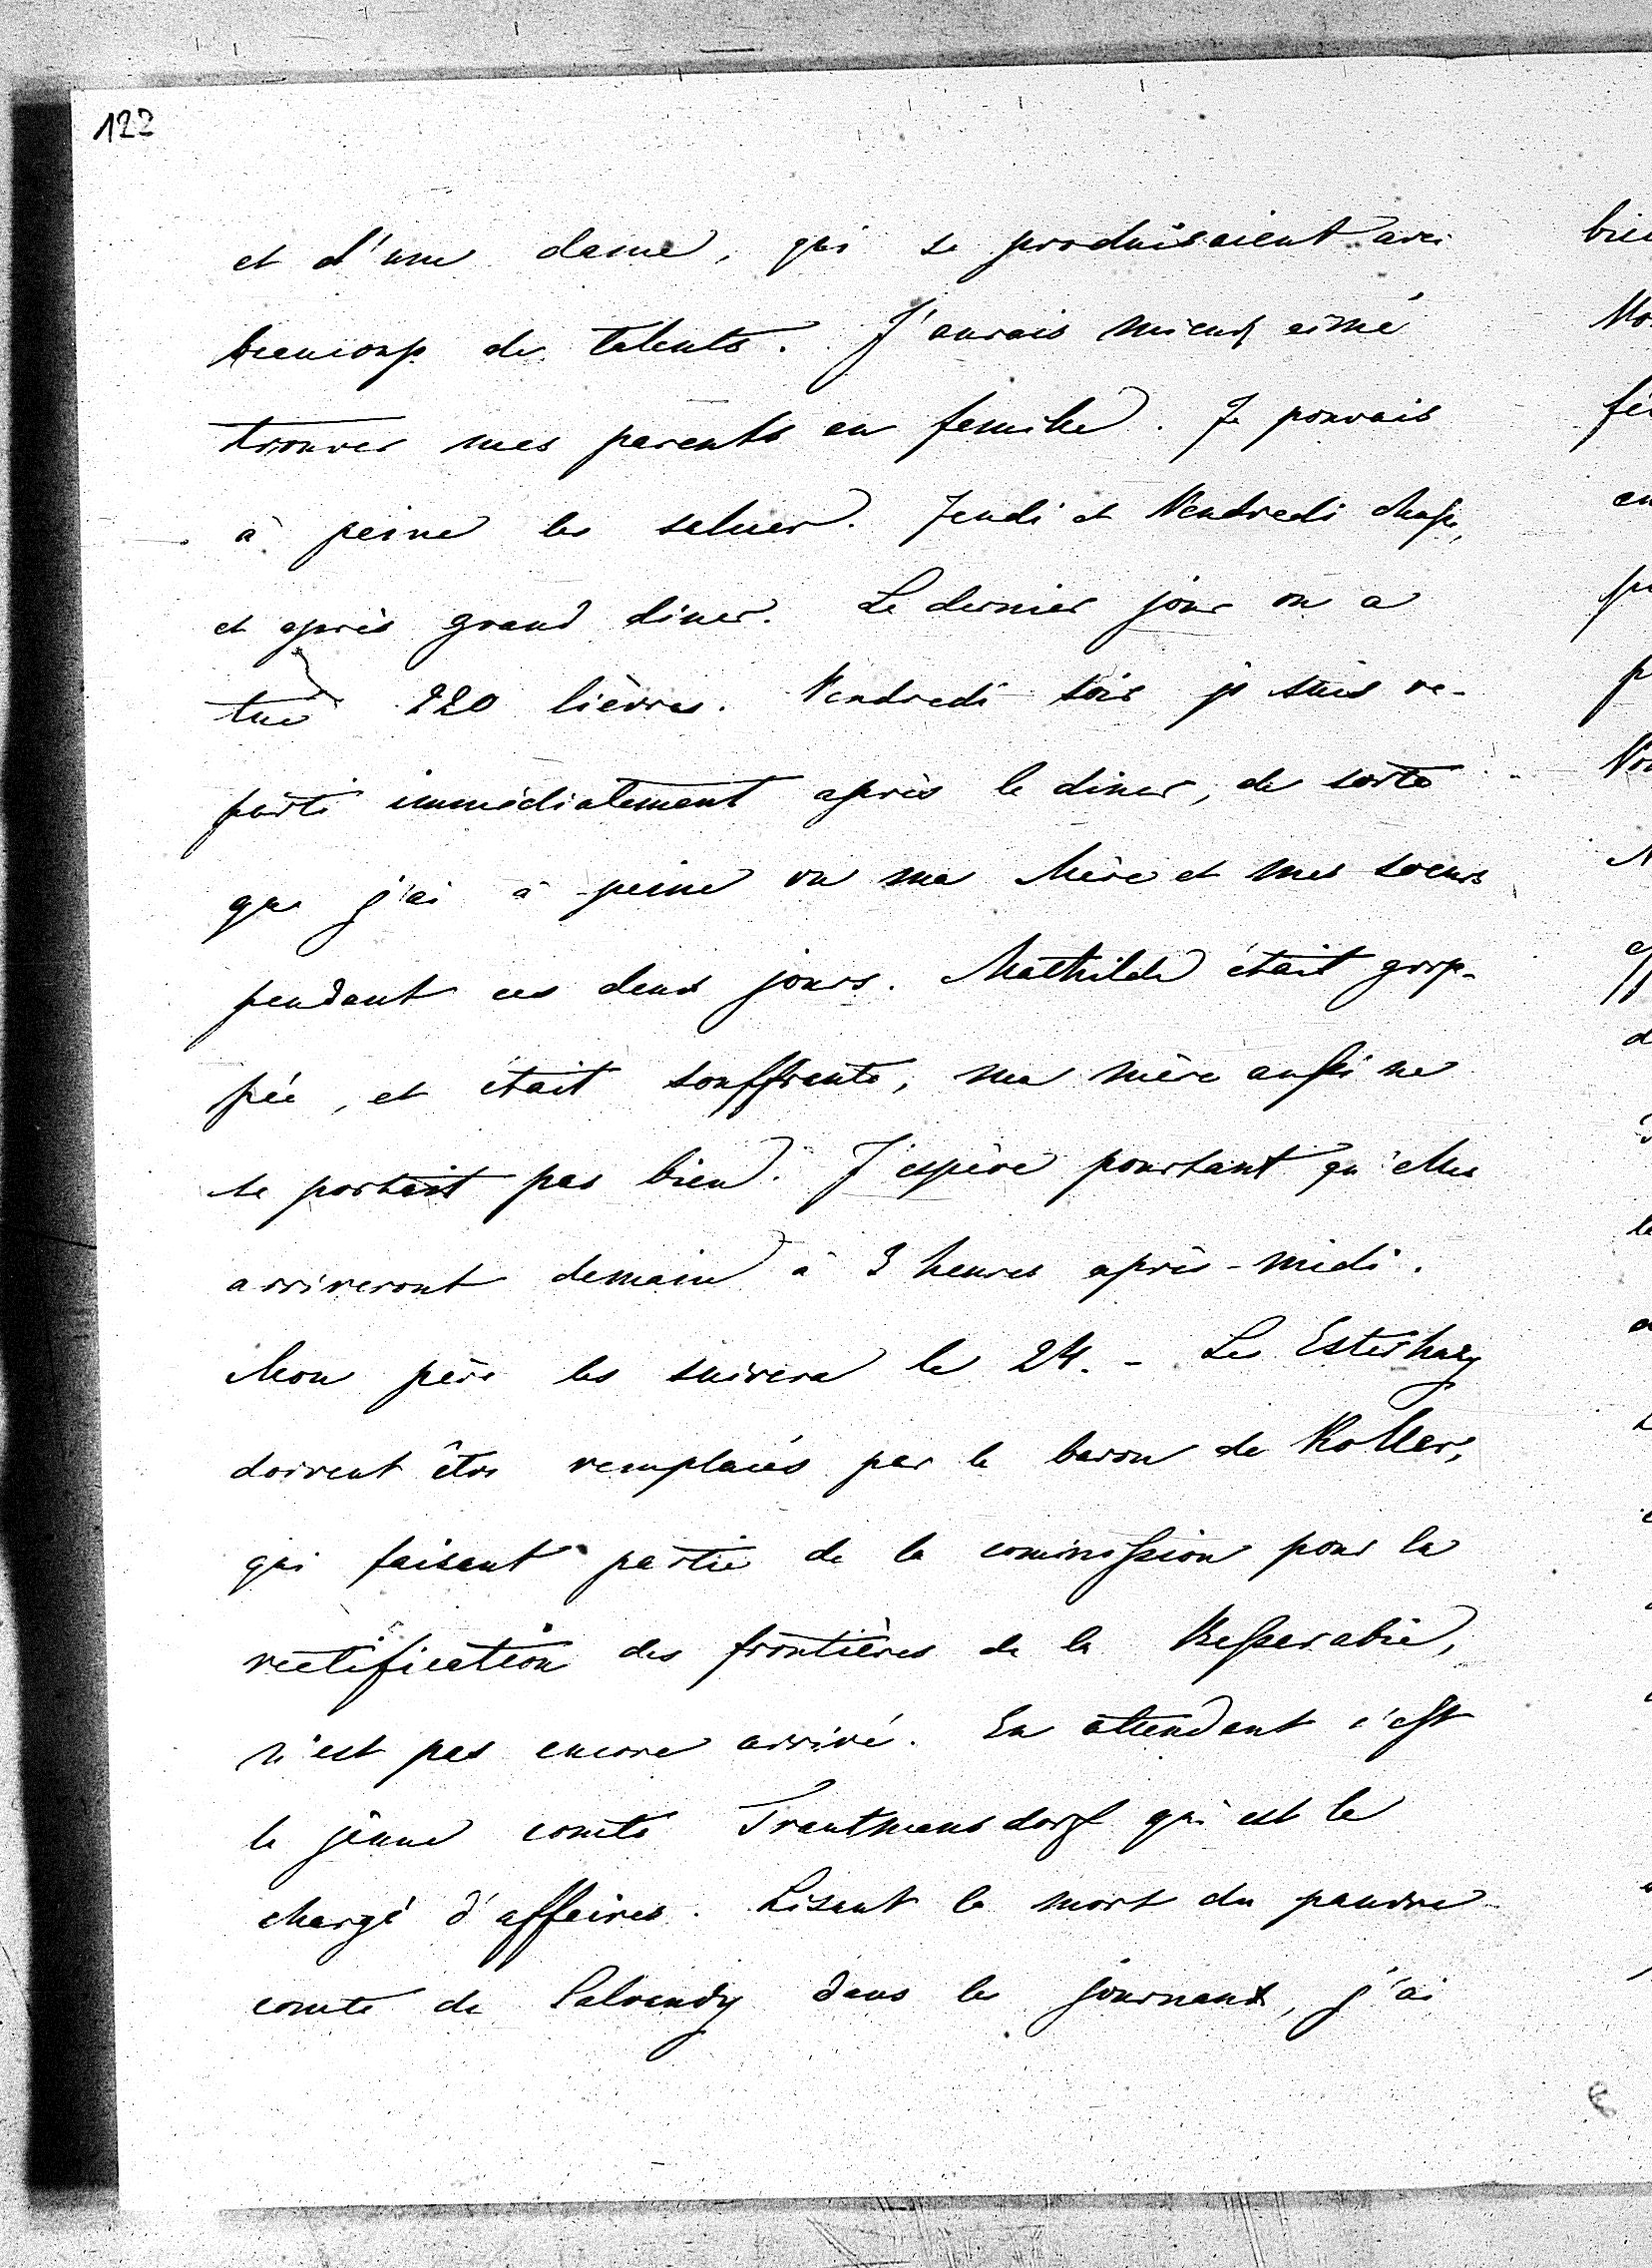 122
et d'une dame, qui se produisaient avec
beaucoup de talents. J'aurais mieux aimé
trouver mes parents en famille. Je pouvais
à peine les saluer. Jeudi et Vendredi chasse,
et après grand diner. Le dernier jour on a
tué 220 lièvres. Vendredi soir je suis re-
parti immédiatement après le diner, de sorte
que j'ai à peine vu ma Mère et mes soeurs
pendant ces deux jours. Mathilde était grip-
pée, et était souffrante, ma mère aussi ne
se portait pas bien. J'espère pourtant qu'elles
arriveront demain à 3 heures après-midi.
Mon père les suivera le 24. - Les Esterhazy
doivent être remplacés par le baron de Koller,
qui faisant partie de la commission pour la
rectification des frontières de la Bessarabie,
n'est pas encore arrivé. En attendant c'est
le jeune comte Trautmansdorf qui est le
chargé d'affaires. Lisant la mort du pauvre
comte de Salvandy dans les journaux, j'ai